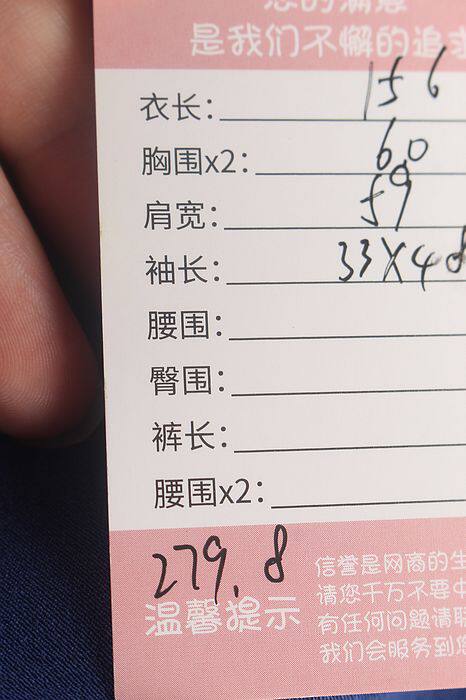 您的满意
是我们不懈的追求
衣长: 156
胸围x2: 60
肩宽: 59
袖长: 33X48
腰围:
臀围:
裤长:
腰围x2:
279.8
温馨提示
信誉是网商的生
请您千万不要中
有任何问题请联
我们会服务到您